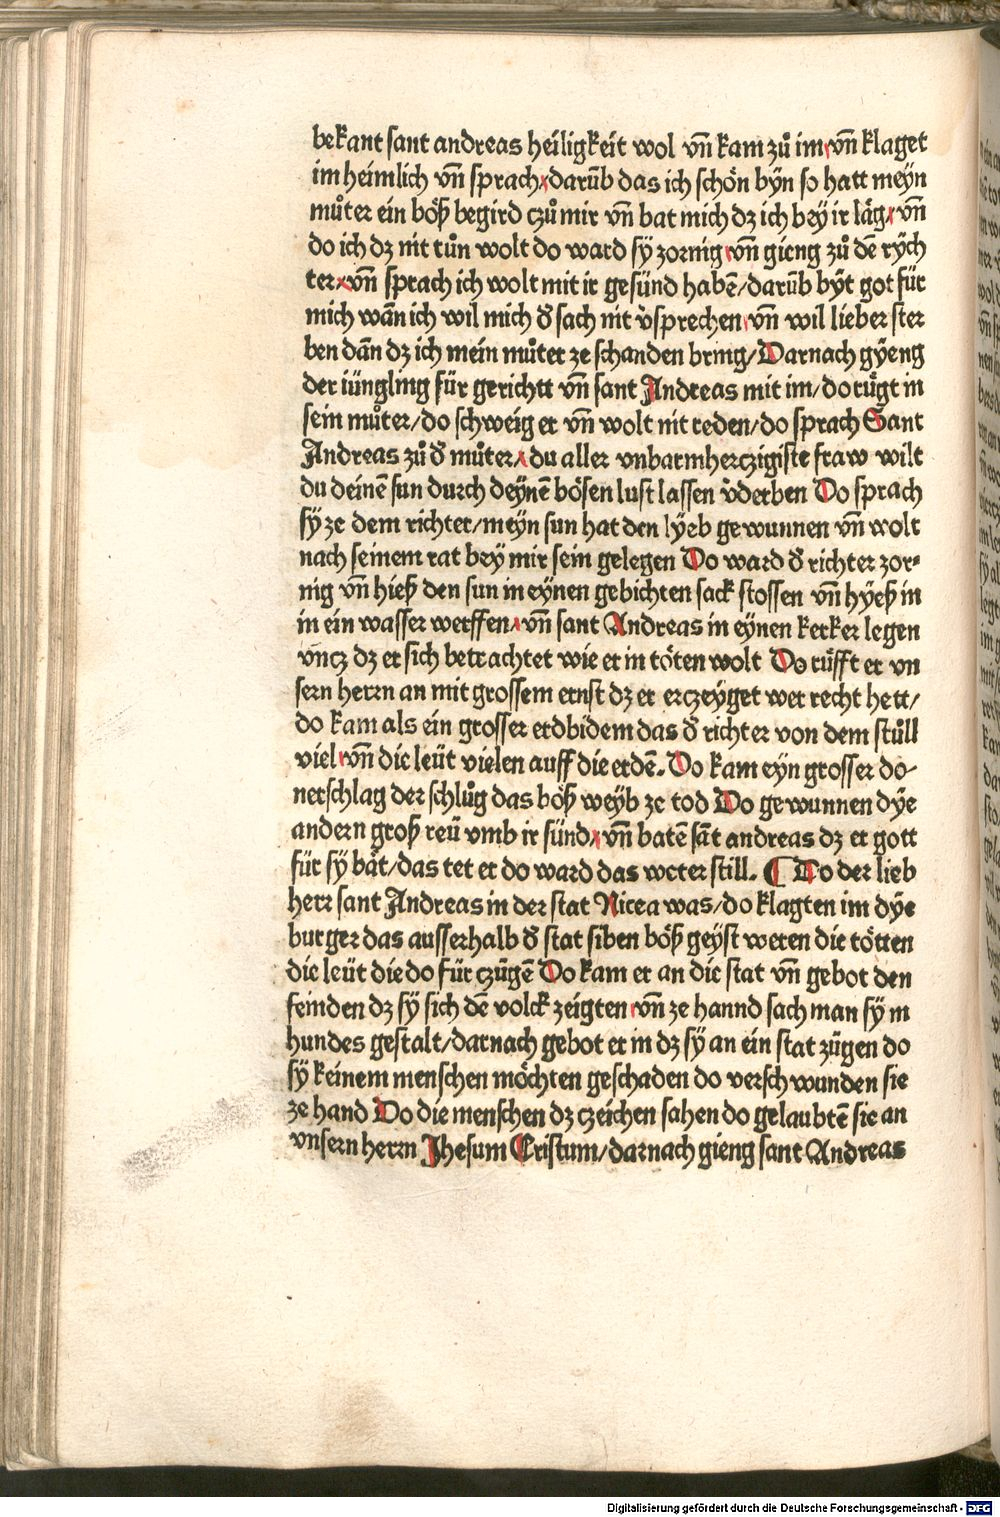 bekant sant andreas heiligkeit wol vn̄ kam zů im vn̄ klaget
im heimlich vn̄ sprach darūb das ich schön bÿn so hatt meÿn
můter ein böß begird czů mir vn̄ bat mich dz ich beÿ ir läg vn̄
do ich dz nit tůn wolt do ward sÿ zornig vn̄ gieng zů dē rÿch
ter vn̄ sprach ich wolt mit ir gesünd habē/darūb bÿt got für
mich wān ich wil mich d̕ sach nit v̕sprechen vn̄ wil lieber ster
ben dān dz ich mein můter ze schanden bring/Darnach gÿeng
der iüngling für gerichtt vn̄ sant Andreas mit im/do rügt in
sein můter/do schweig er vn̄ wolt nit reden/do sprach Sant
Andreas zů d̕ můter du aller vnbarmherczigiste fraw wilt
du deinē sun durch deÿnē bösen lust lassen v̕derben Do sprach
sÿ ze dem richter/meÿn sun hat den lÿeb gewunnen vn̄ wolt
nach seinem rat bey mir sein gelegen Do ward d̕ richter zor⸗
nig vn̄ hieß den sun in eÿnen gebichten sack stossen vn̄ hÿeß in
in ein wasser werffen vn̄ sant Andreas in eÿnen kerker legen
vncz dz er sich betrachtet wie er in töten wolt Do rüfft er vn
sern herrn an mit grossem ernst dz er erczeÿget wer recht hett/
do kam als ein grosser erdbidem das d̕ richter von dem stůll
viel vn̄ die leüt vielen auff die erdē. Do kam eyn grosser do⸗
nerschlag der schlůg das böß weÿb ze tod Do gewunnen dÿe
andern groß reü vmb ir sünd vn̄ batē sāt andreas dz er gott
für sÿ bät/das tet er do ward das weter still. ¶ Do der lieb
herr sant Andreas in der stat Nicea was/do klagten im dÿe
burger das ausserhalb d̕ stat siben böß geÿst weren die tötten
die leüt die do für czügē Do kam er an die stat vn̄ gebot den
feinden dz sÿ sich dē volck zeigten vn̄ ze hannd sach man sÿ in
hundes gestalt/darnach gebot er in dz sÿ an ein stat zügen do
sÿ keinem menschen möchten geschaden do verschwunden sie
ze hand Do die menschen dz czeichen sahen do gelaubtē sie an
vnsern herrn Jhesum Cristum/darnach gieng sant Andreas
Digitalisierung gefördert durch die Deutsche Forschungsgemeinschaft - DFG